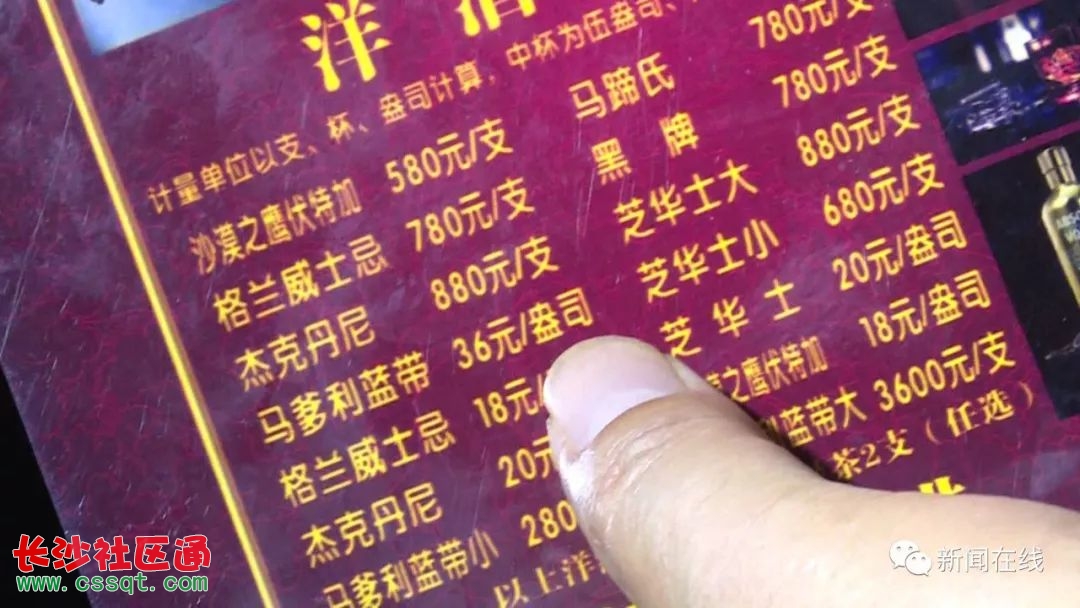 洋 酒
计量单位以支、杯、盎司计算，中杯为伍盎司、
沙漠之鹰伏特加 580元/支 马蹄氏 780元/支
格兰威士忌 780元/支 黑牌 780元/支
杰克丹尼 880元/支 芝华士大 880元/支
马爹利蓝带 36元/盎司 芝华士小 680元/支
格兰威士忌 18元/ 芝华士 20元/盎司
杰克丹尼 20元 之鹰伏特加 18元/盎司
马爹利蓝带小 280 蓝带大 3600元/支
以上洋 茶2支（任选）
长沙社区通
www.cssqt.com
新闻在线